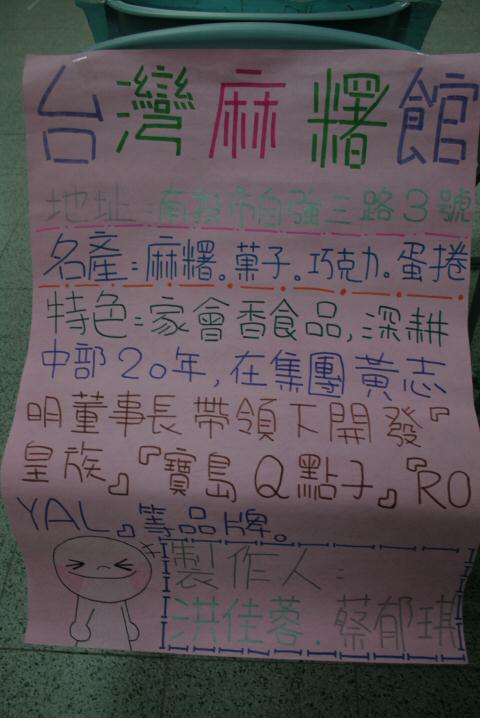 台灣麻糬館
地址:南投市自強三路3號
名產:麻糬。菓子。巧克力。蛋捲
特色:家會香食品,深耕
中部20年,在集團黃志
明董事長帶領下開發『
皇族』『寶島Q點子』『RO
YAL』等品牌。
製作人:
洪佳蓉.蔡郁琪